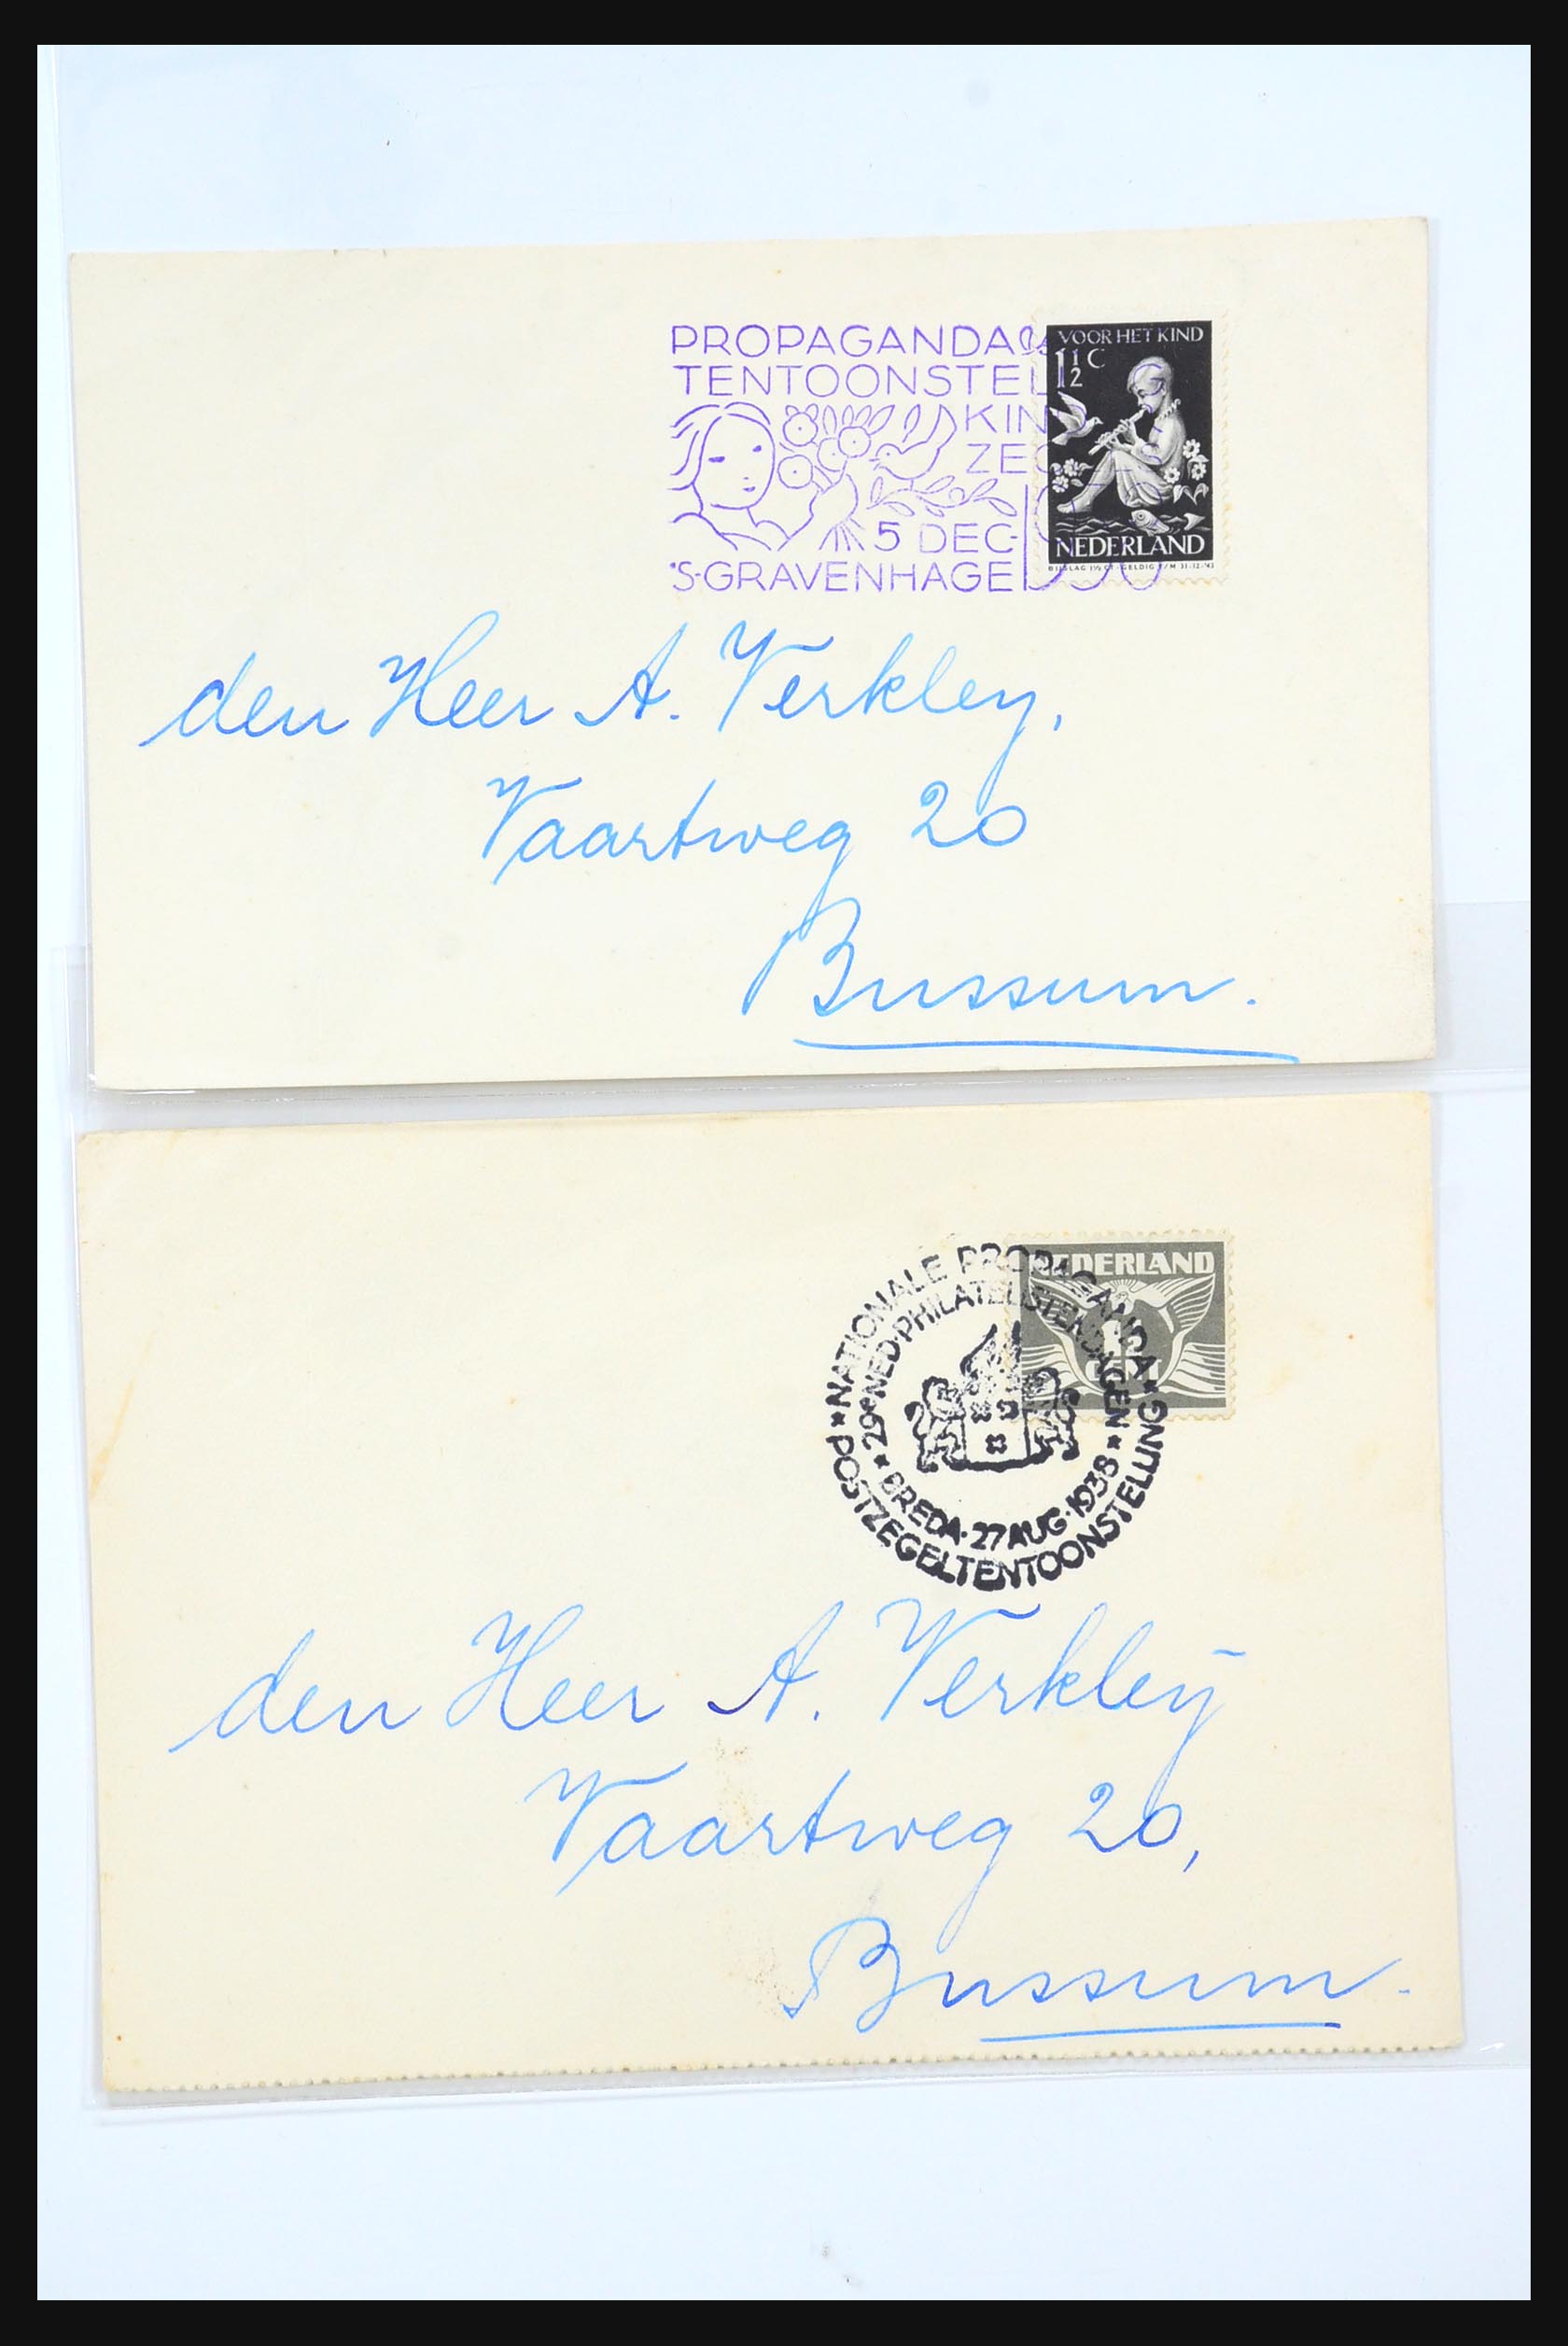 PROPAGANDA
TENTOONSTEL
KIN
ZEG
5 DEC
'S-GRAVENHAGE
VOOR HET KIND
1½ C
NEDERLAND
BIJSLAG 1½ CT·GELDIG T/M 31·12·'43
den Heer A. Verkley,
Vaartweg 20
Bussum.
NEDERLAND
★ NATIONALE PROPAGANDA ★
POSTZEGELTENTOONSTELLING
★ 29e NED·PHILATELISTENDAGEN ★
BREDA·27 AUG·1938
den Heer A. Verkleÿ
Vaartweg 20,
Bussum.